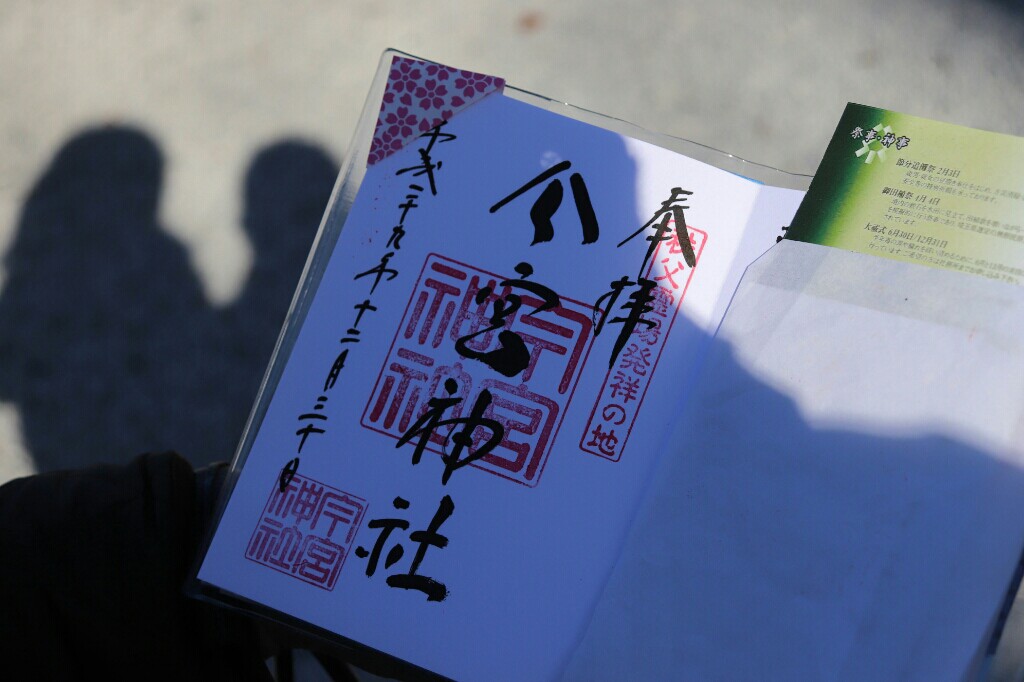 奉拝
秩父霊場発祥の地
今宮神社
今宮神社
平成二十九年十二月二十日
今宮神社
祭事・神事
節分追儺祭 2月3日
御田植祭 4月4日
大祓式 6月30日/12月31日